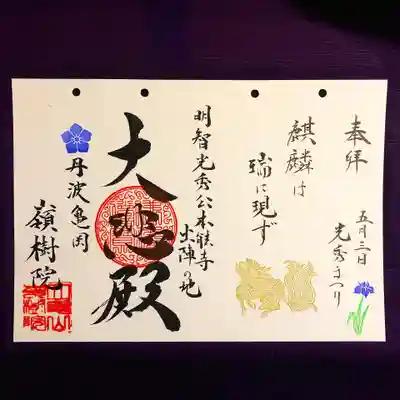 奉拝
五月三日
光秀まつり
麒麟は
瑞に現ず
明智光秀公本能寺
出陣の地
大悲殿
丹波亀岡
嶺樹院